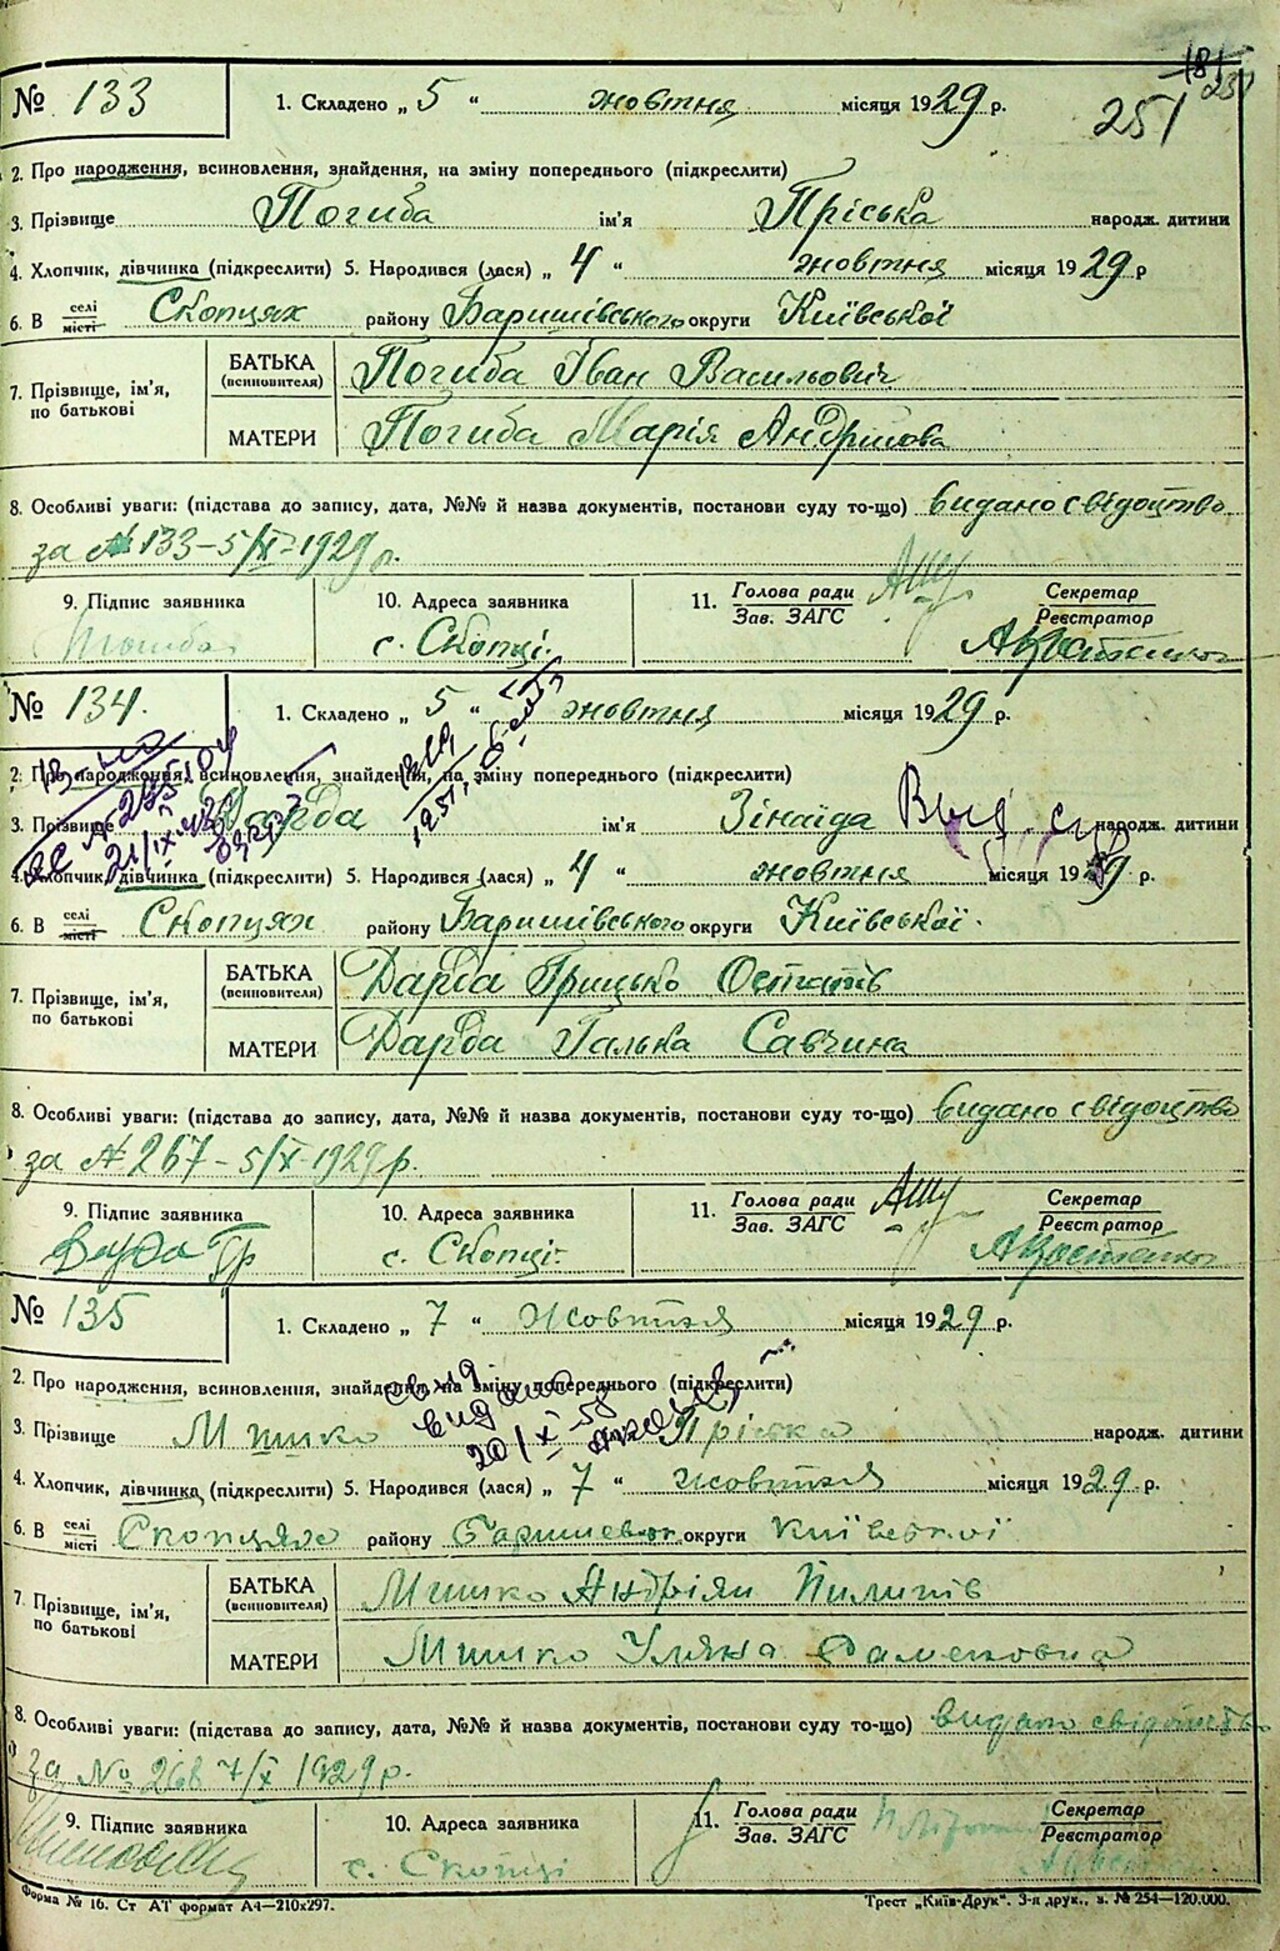 251
№ 133
1. Складено „ 5 “ жовтня місяця 1929 р.
2. Про народження, всиновлення, знайдення, на зміну попереднього (підкреслити)
3. Прізвище Погиба ім'я Пріська народж. дитини
4. Хлопчик, дівчинка (підкреслити) 5. Народився (лася) „ 4 “ жовтня місяця 1929 р
6. В селі місті Скопцях району Баришівського округи Київської
7. Прізвище, ім'я, по батькові
БАТЬКА (всиновителя) Погиба Іван Васильович
МАТЕРИ Погиба Марія Андрійова
8. Особливі уваги: (підстава до запису, дата, №№ й назва документів, постанови суду то-що) видано свідоцтво
за № 133-5/X-1929 р.
9. Підпис заявника
10. Адреса заявника
с. Скопці.
11. Голова ради Зав. ЗАГС
Секретар Реєстратор
№ 134.
1. Складено „ 5 “ жовтня місяця 1929 р.
2. Про народження, всиновлення, знайдення, на зміну попереднього (підкреслити)
3. Прізвище Дарда ім'я Зінаїда народж. дитини
4. Хлопчик, дівчинка (підкреслити) 5. Народився (лася) „ 4 “ жовтня місяця 1929 р.
6. В селі місті Скопцях району Баришівського округи Київської.
7. Прізвище, ім'я, по батькові
БАТЬКА (всиновителя) Дарда Грицько Остапів
МАТЕРИ Дарда Галька Савчина
8. Особливі уваги: (підстава до запису, дата, №№ й назва документів, постанови суду то-що) видано свідоцтво
за № 267-5/X-1929 р.
9. Підпис заявника
10. Адреса заявника
с. Скопці.
11. Голова ради Зав. ЗАГС
Секретар Реєстратор
№ 135
1. Складено „ 7 “ Жовтня місяця 1929 р.
2. Про народження, всиновлення, знайдення, на зміну попереднього (підкреслити)
видано
20/X 58
3. Прізвище Мишко Пріська народж. дитини
4. Хлопчик, дівчинка (підкреслити) 5. Народився (лася) „ 7 “ жовтня місяця 1929 р.
6. В селі місті Скопцях району округи Київської
7. Прізвище, ім'я, по батькові
БАТЬКА (всиновителя) Мишко Андріян Пилипів
МАТЕРИ Мишко Уляна
8. Особливі уваги: (підстава до запису, дата, №№ й назва документів, постанови суду то-що) видано свідоцтво
за № 268 7/X 1929 р.
9. Підпис заявника
10. Адреса заявника
с. Скопці
11. Голова ради Зав. ЗАГС
Секретар Реєстратор
Форма № 16. Ст АТ формат А4—210х297.
Трест „Київ-Друк“. 3-я друк., з. № 254—120.000.